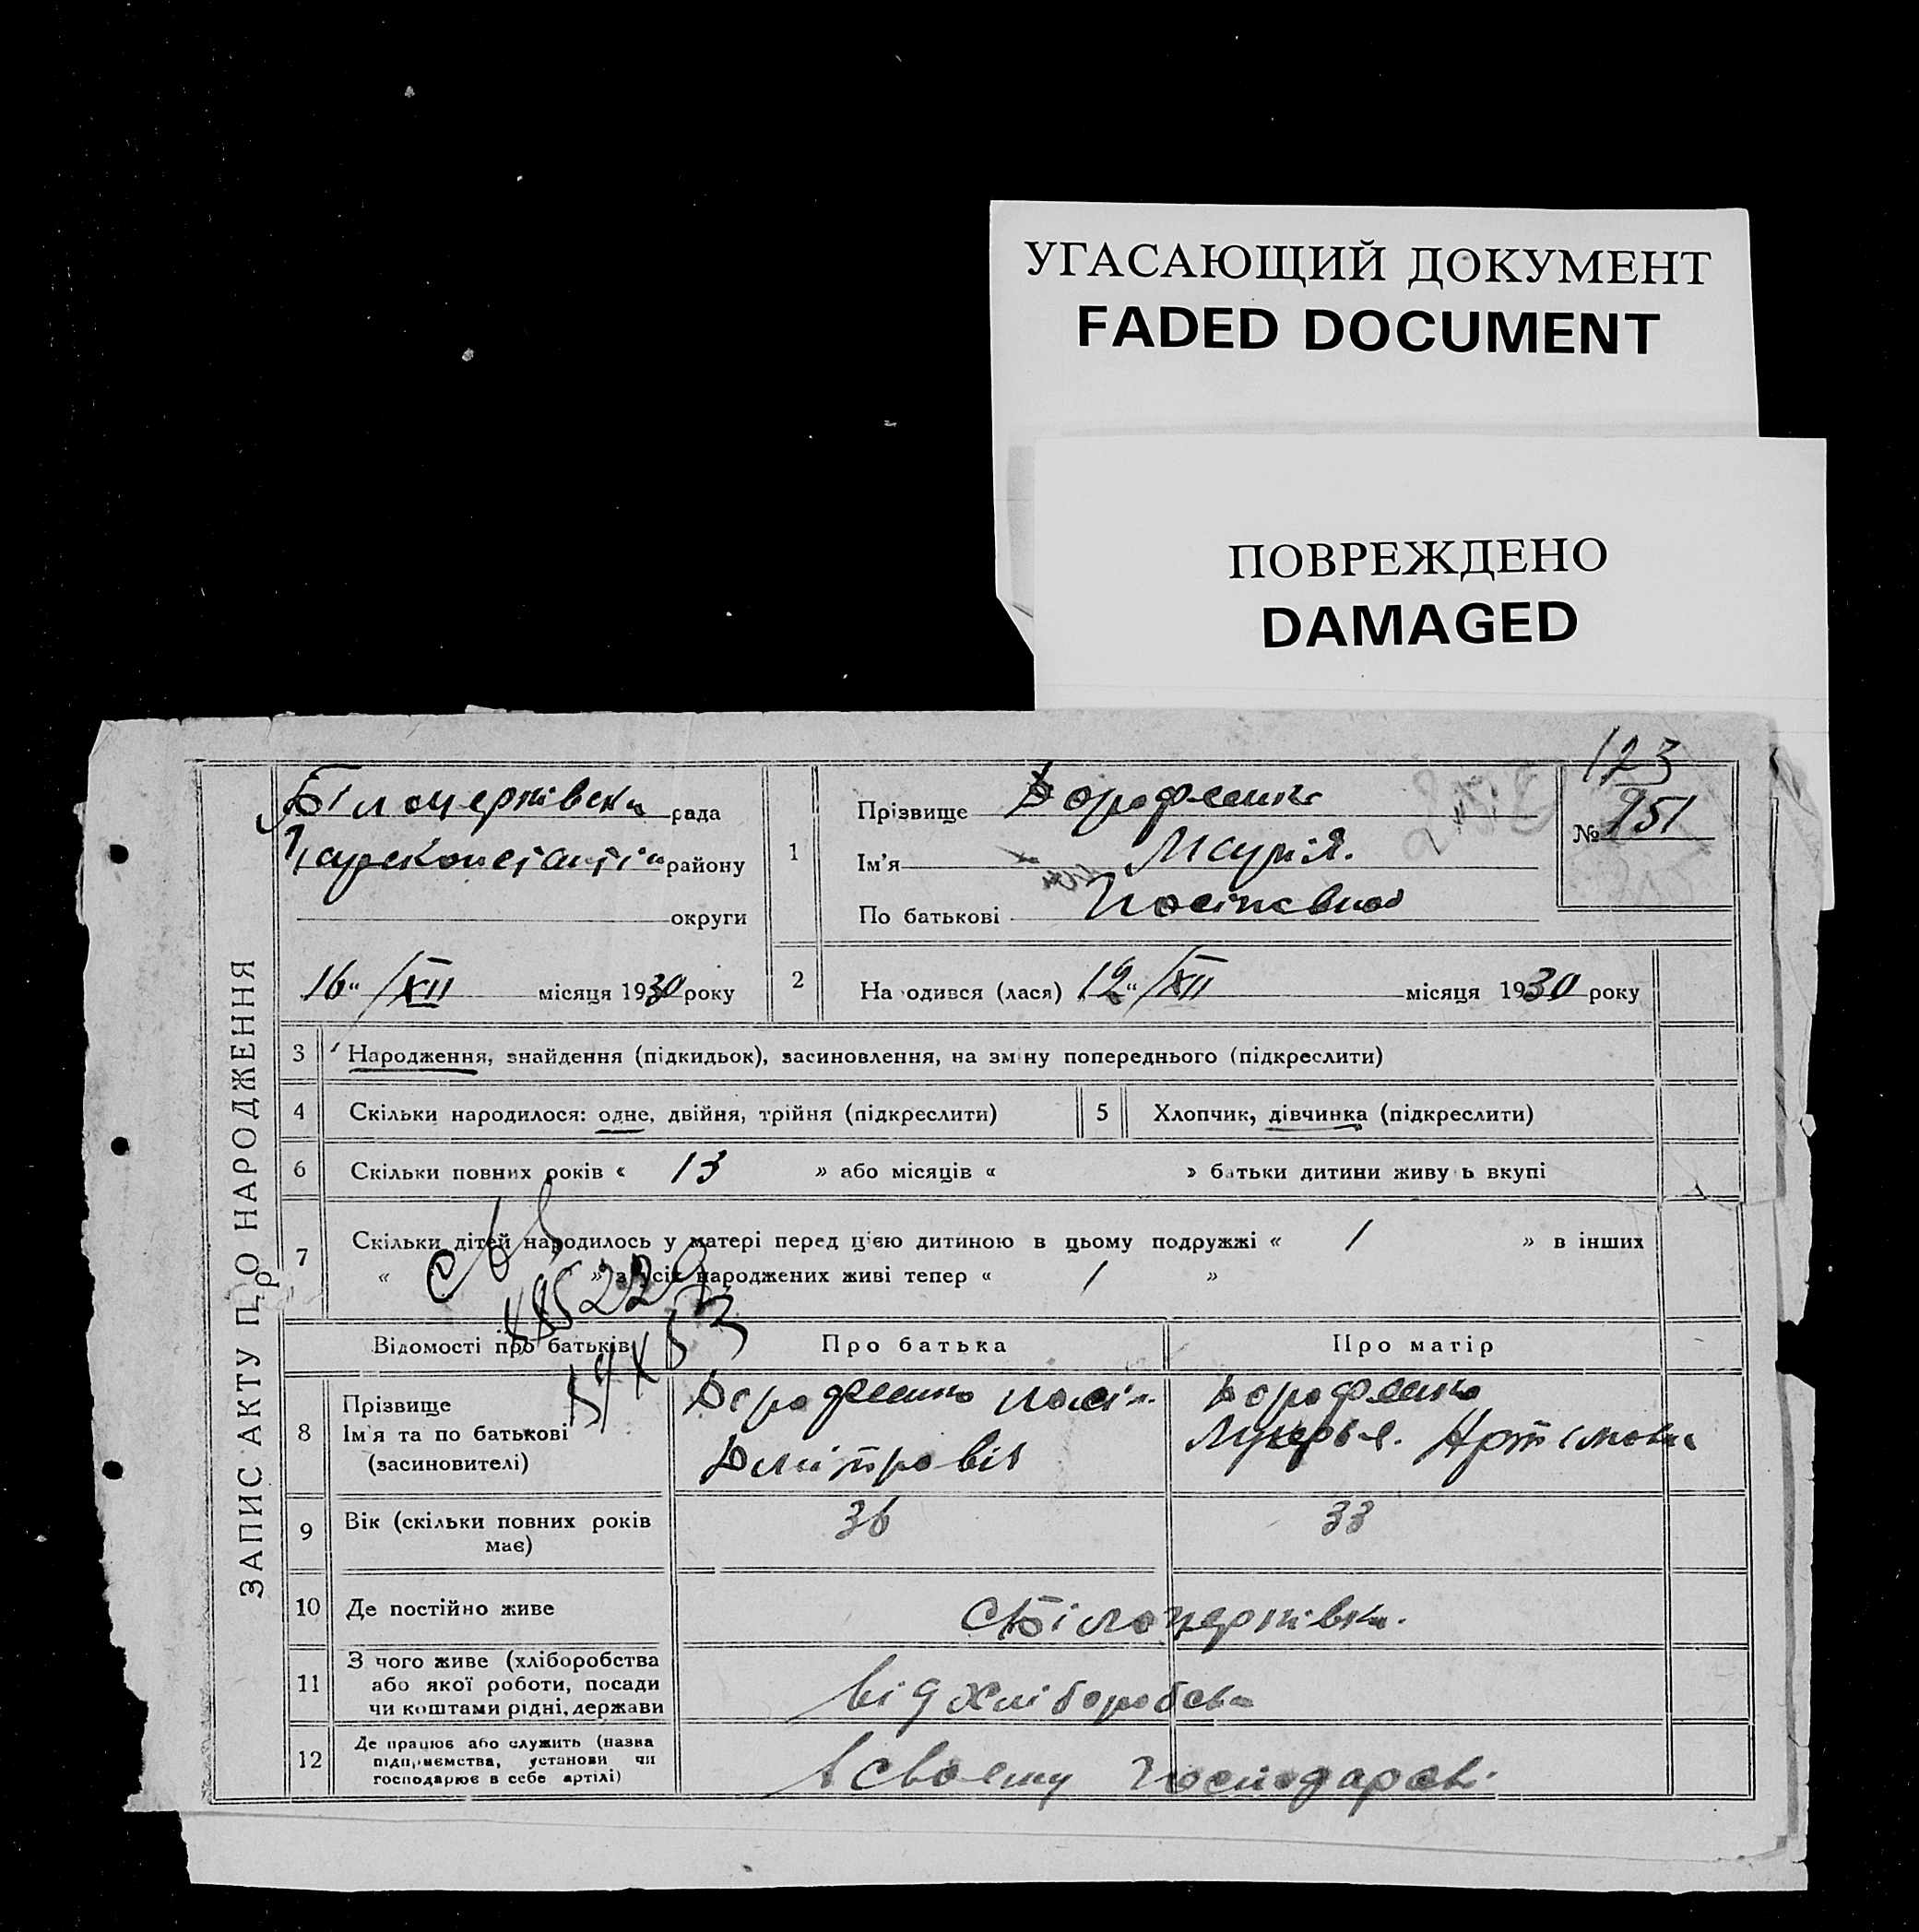 УГАСАЮЩИЙ ДОКУМЕНТ
FADED DOCUMENT
ПОВРЕЖДЕНО
DAMAGED
ЗАПИС АКТУ ПРО НАРОДЖЕННЯ
123
№ 251
рада
району
округи
16 " / XII місяця 1930 року
1
Прізвище Дорофленко
Ім'я Марія.
По батькові
2
На одився (лася) 12 " / XII місяця 1930 року
3 Народження, знайдення (підкидьок), засиновлення, на зміну попереднього (підкреслити)
4 Скільки народилося: одне, двійня, трійня (підкреслити)
5 Хлопчик, дівчинка (підкреслити)
6 Скільки повних років « 13 » або місяців « » батьки дитини живу ь вкупі
7 Скільки дітей народилось у матері перед цією дитиною в цьому подружжі « 1 » в інших
« » з усіх народжених живі тепер « 1 »
Відомості про батьків
Про батька
Про матір
8 Прізвище
Ім'я та по батькові
(засновителі)
Дорофленко
Дмітровіч
Дорофленко
9 Вік (скільки повних років
має)
36
33
10 Де постійно живе
11 З чого живе (хліборобства
або якої роботи, посади
чи коштами рідні, держави
від хліборобства
12 Де працює або служить (назва
підприємства, установи чи
господарює в себе артілі)
в своему господарстві